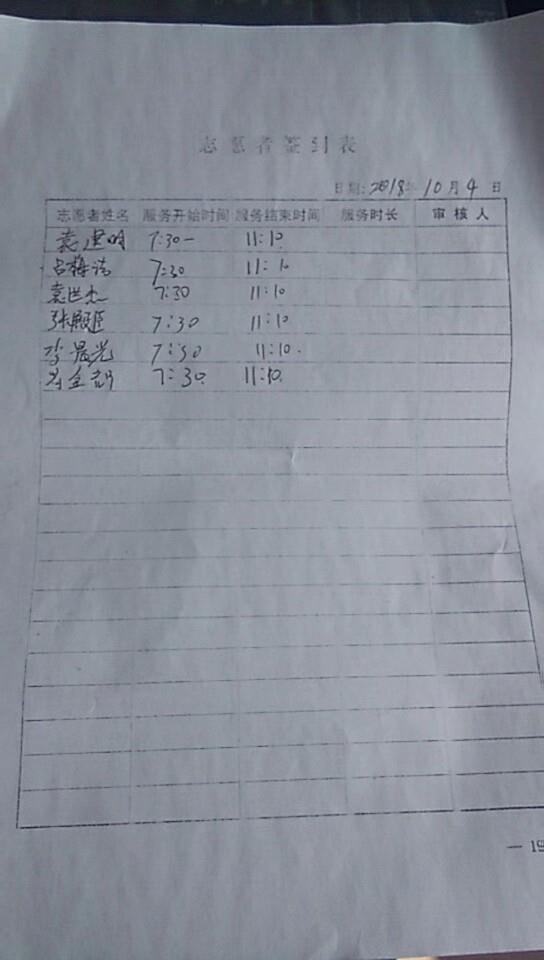 志愿者签到表
日期:2018年10月4日
志愿者姓名 服务开始时间 服务结束时间 服务时长 审核人
袁建明 7:30- 11:10
7:30 11:10
袁世杰 7:30 11:10
张殿臣 7:30 11:10
李晨光 7:30 11:10.
7:30 11:10.
— 19